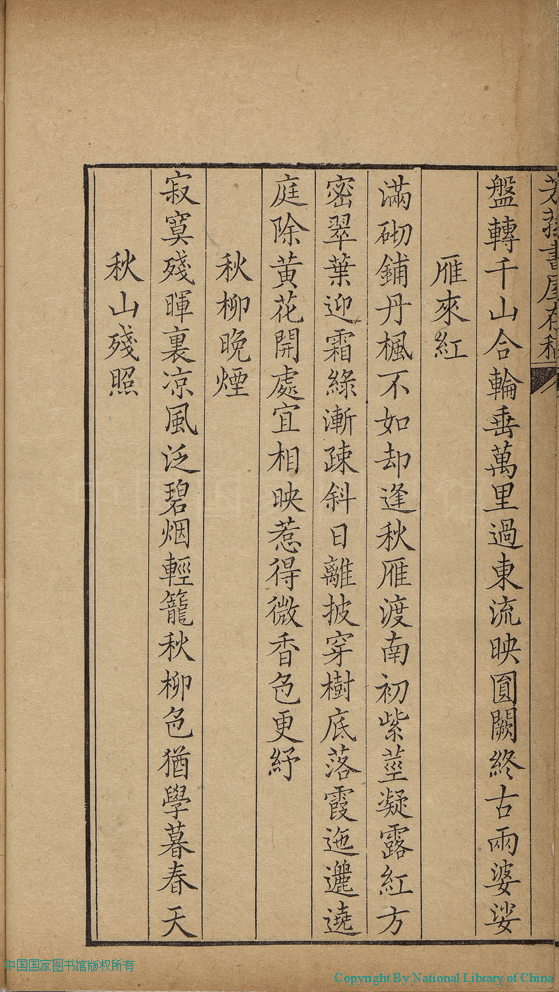 盤轉千山合輪垂萬里過東流映圓闕終古兩婆娑
雁來紅
滿砌鋪丹楓不如却逢秋雁渡南初紫莖凝露紅方
密翠葉迎霜綠漸疎斜日離披穿樹底落霞迤邐遶
庭除黃花開處宜相映惹得微香色更紓
秋柳晚煙
寂寞殘暉裏凉風泛碧烟輕籠秋柳色猶學暮春天
秋山殘照
中国国家图书馆版权所有
Copyright By National Library of China